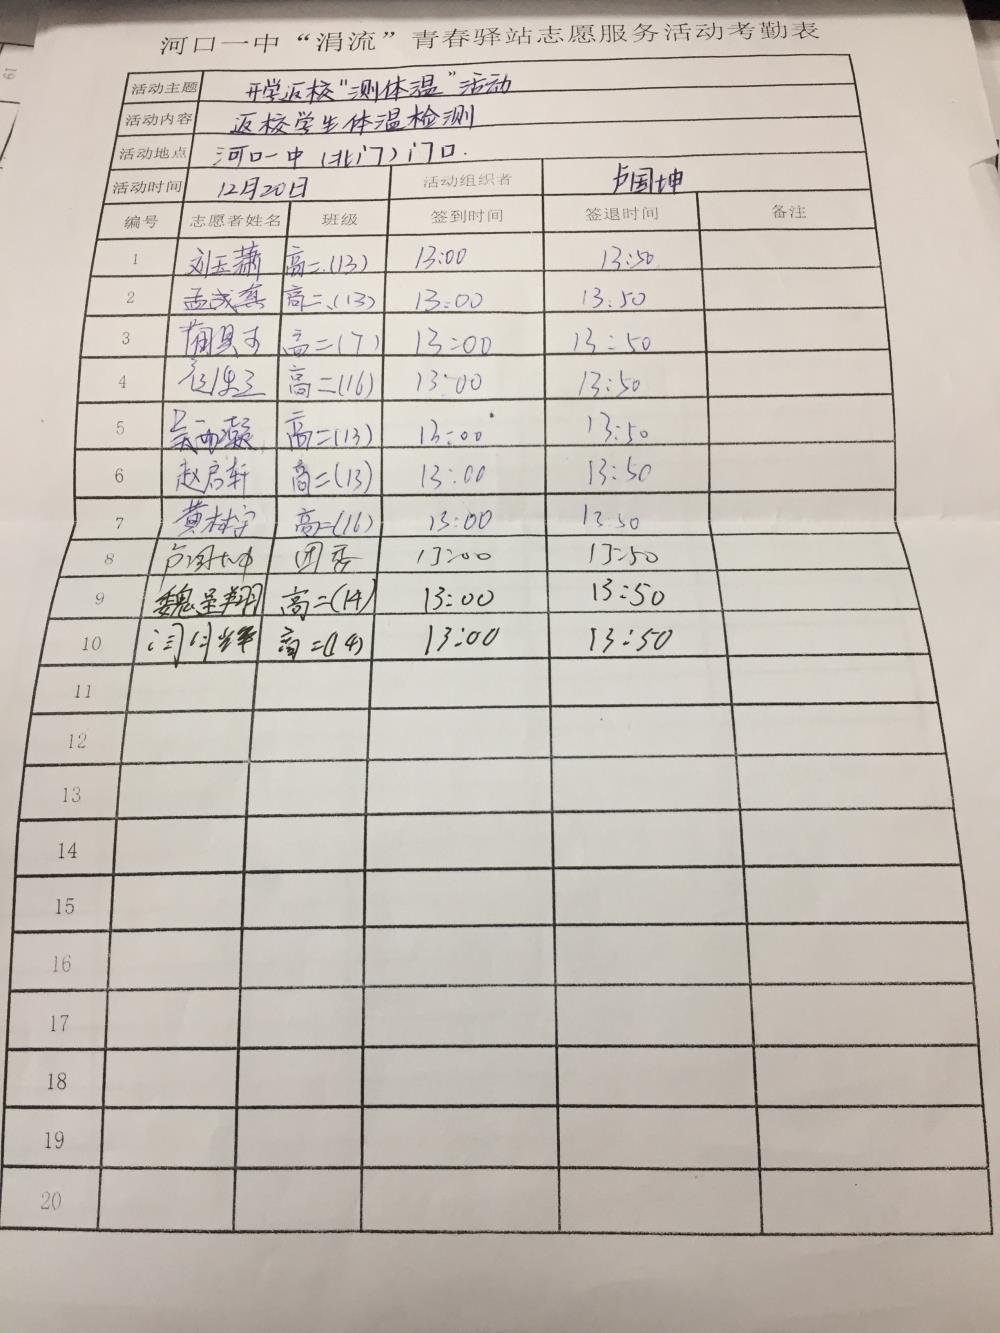 河口一中“涓流”青春驿站志愿服务活动考勤表
活动主题 开学返校“测体温”活动
活动内容 返校学生体温检测
活动地点 河口一中(北门)门口.
活动时间 12月20日 活动组织者 卢国坤
编号 志愿者姓名 班级 签到时间 签退时间 备注
1 刘玉萧 高二.(13) 13:00 13:50
2 高二.(13) 13:00 13:50
3 高二(7) 13:00 13:50
4 高二(16) 13:00 13:50
5 高二(13) 13:00 13:50
6 赵启轩 高二(13) 13:00 13:50
7 黄林宇 高二(16) 13:00 13:50
8 卢国坤 团委 13:00 13:50
9 魏呈翔 高二(14) 13:00 13:50
10 高二(14) 13:00 13:50
11
12
13
14
15
16
17
18
19
20